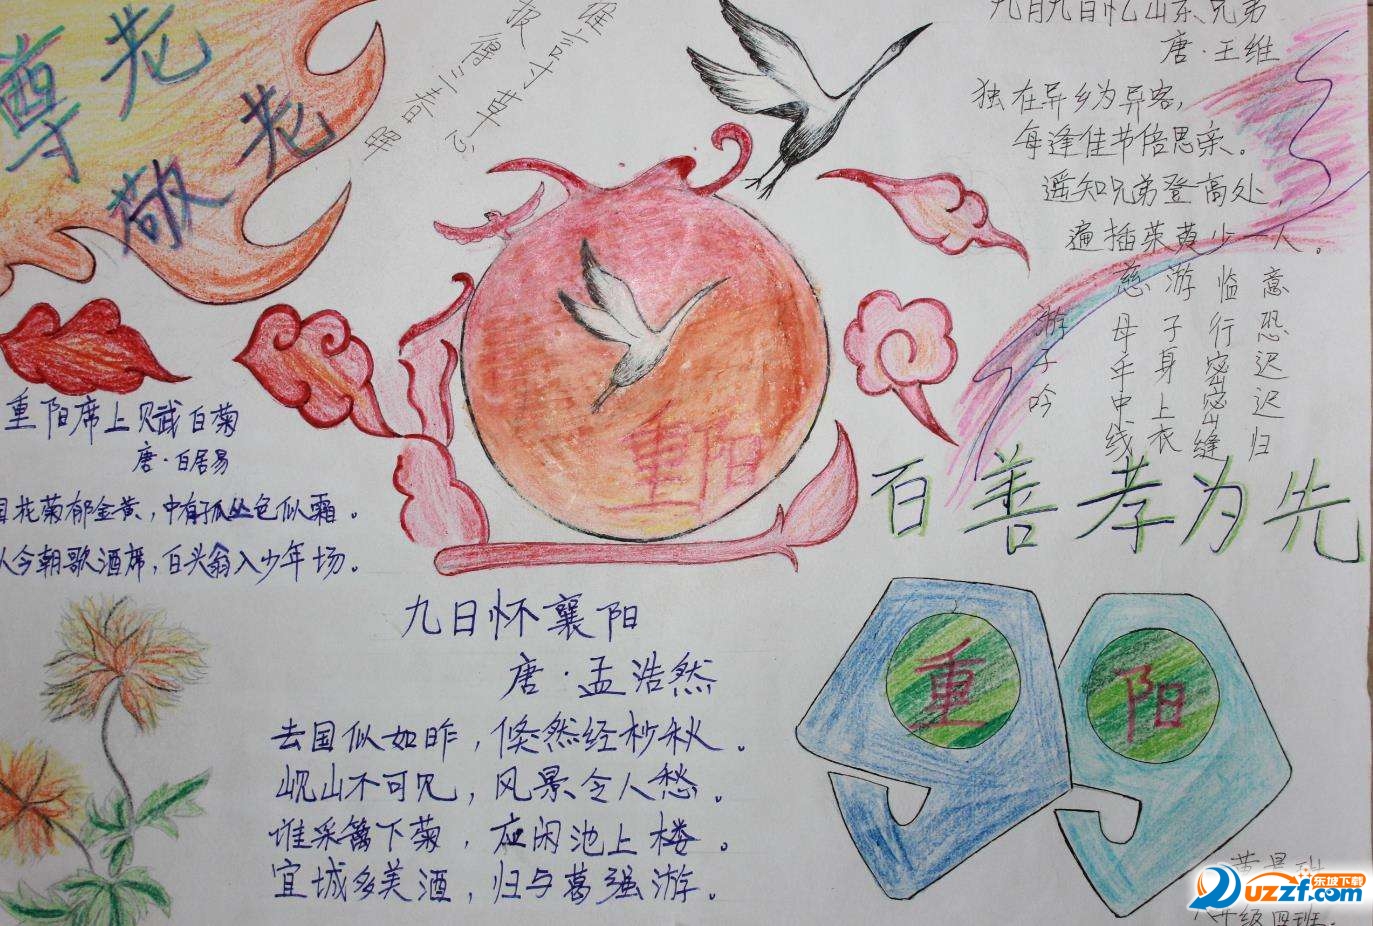 尊老
敬老
谁言寸草心
报得三春晖
九月九日忆山东兄弟
唐·王维
独在异乡为异客，
每逢佳节倍思亲。
遥知兄弟登高处，
遍插茱萸少一人。
游子吟
慈母手中线
游子身上衣
临行密密缝
意恐迟迟归
重阳
重阳席上赋白菊
唐·白居易
园花菊郁金黄，中有孤丛色似霜。
今朝歌酒席，白头翁入少年场。
百善孝为先
九日怀襄阳
唐·孟浩然
去国似如昨，倏然经杪秋。
岘山不可见，风景令人愁。
谁采篱下菊，应闲池上楼。
宜城多美酒，归与葛强游。
重
阳
东坡下载
uzzf.com
级四班.